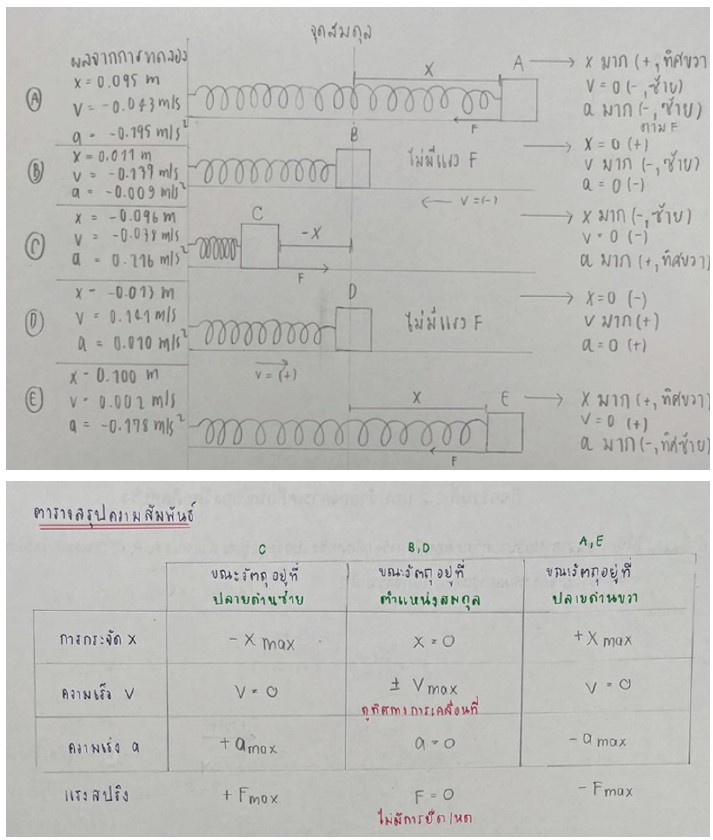 จุดสมดุล
ผลจากการทดลอง
A
x = 0.095 m
v = -0.043 m/s
a = -0.195 m/s²
x
A
F
x มาก (+, ทิศขวา)
v = 0 (-, ซ้าย)
a มาก (-, ซ้าย)
ตาม F
B
x = 0.011 m
v = -0.139 m/s
a = -0.009 m/s²
B
ไม่มีแรง F
v = (-)
x = 0 (+)
v มาก (-, ซ้าย)
a = 0 (-)
C
x = -0.096 m
v = -0.038 m/s
a = 0.216 m/s²
C
-x
F
x มาก (-, ซ้าย)
v = 0 (-)
a มาก (+, ทิศขวา)
D
x = -0.013 m
v = 0.141 m/s
a = 0.010 m/s²
D
ไม่มีแรง F
v = (+)
x = 0 (-)
v มาก (+)
a = 0 (+)
E
x = 0.100 m
v = 0.002 m/s
a = -0.178 m/s²
x
E
F
x มาก (+, ทิศขวา)
v = 0 (+)
a มาก (-, ทิศซ้าย)
ตารางสรุปความสัมพันธ์
C B,D A,E
ขณะวัตถุอยู่ที่ ขณะวัตถุอยู่ที่ ขณะวัตถุอยู่ที่
ปลายด้านซ้าย ตำแหน่งสมดุล ปลายด้านขวา
การกระจัด x - x max x = 0 + x max
ความเร็ว v v = 0 ± v max v = 0
ดูทิศทางการเคลื่อนที่
ความเร่ง a + a max a = 0 - a max
แรงสปริง + F max F = 0 - F max
ไม่มีการยืด/หด